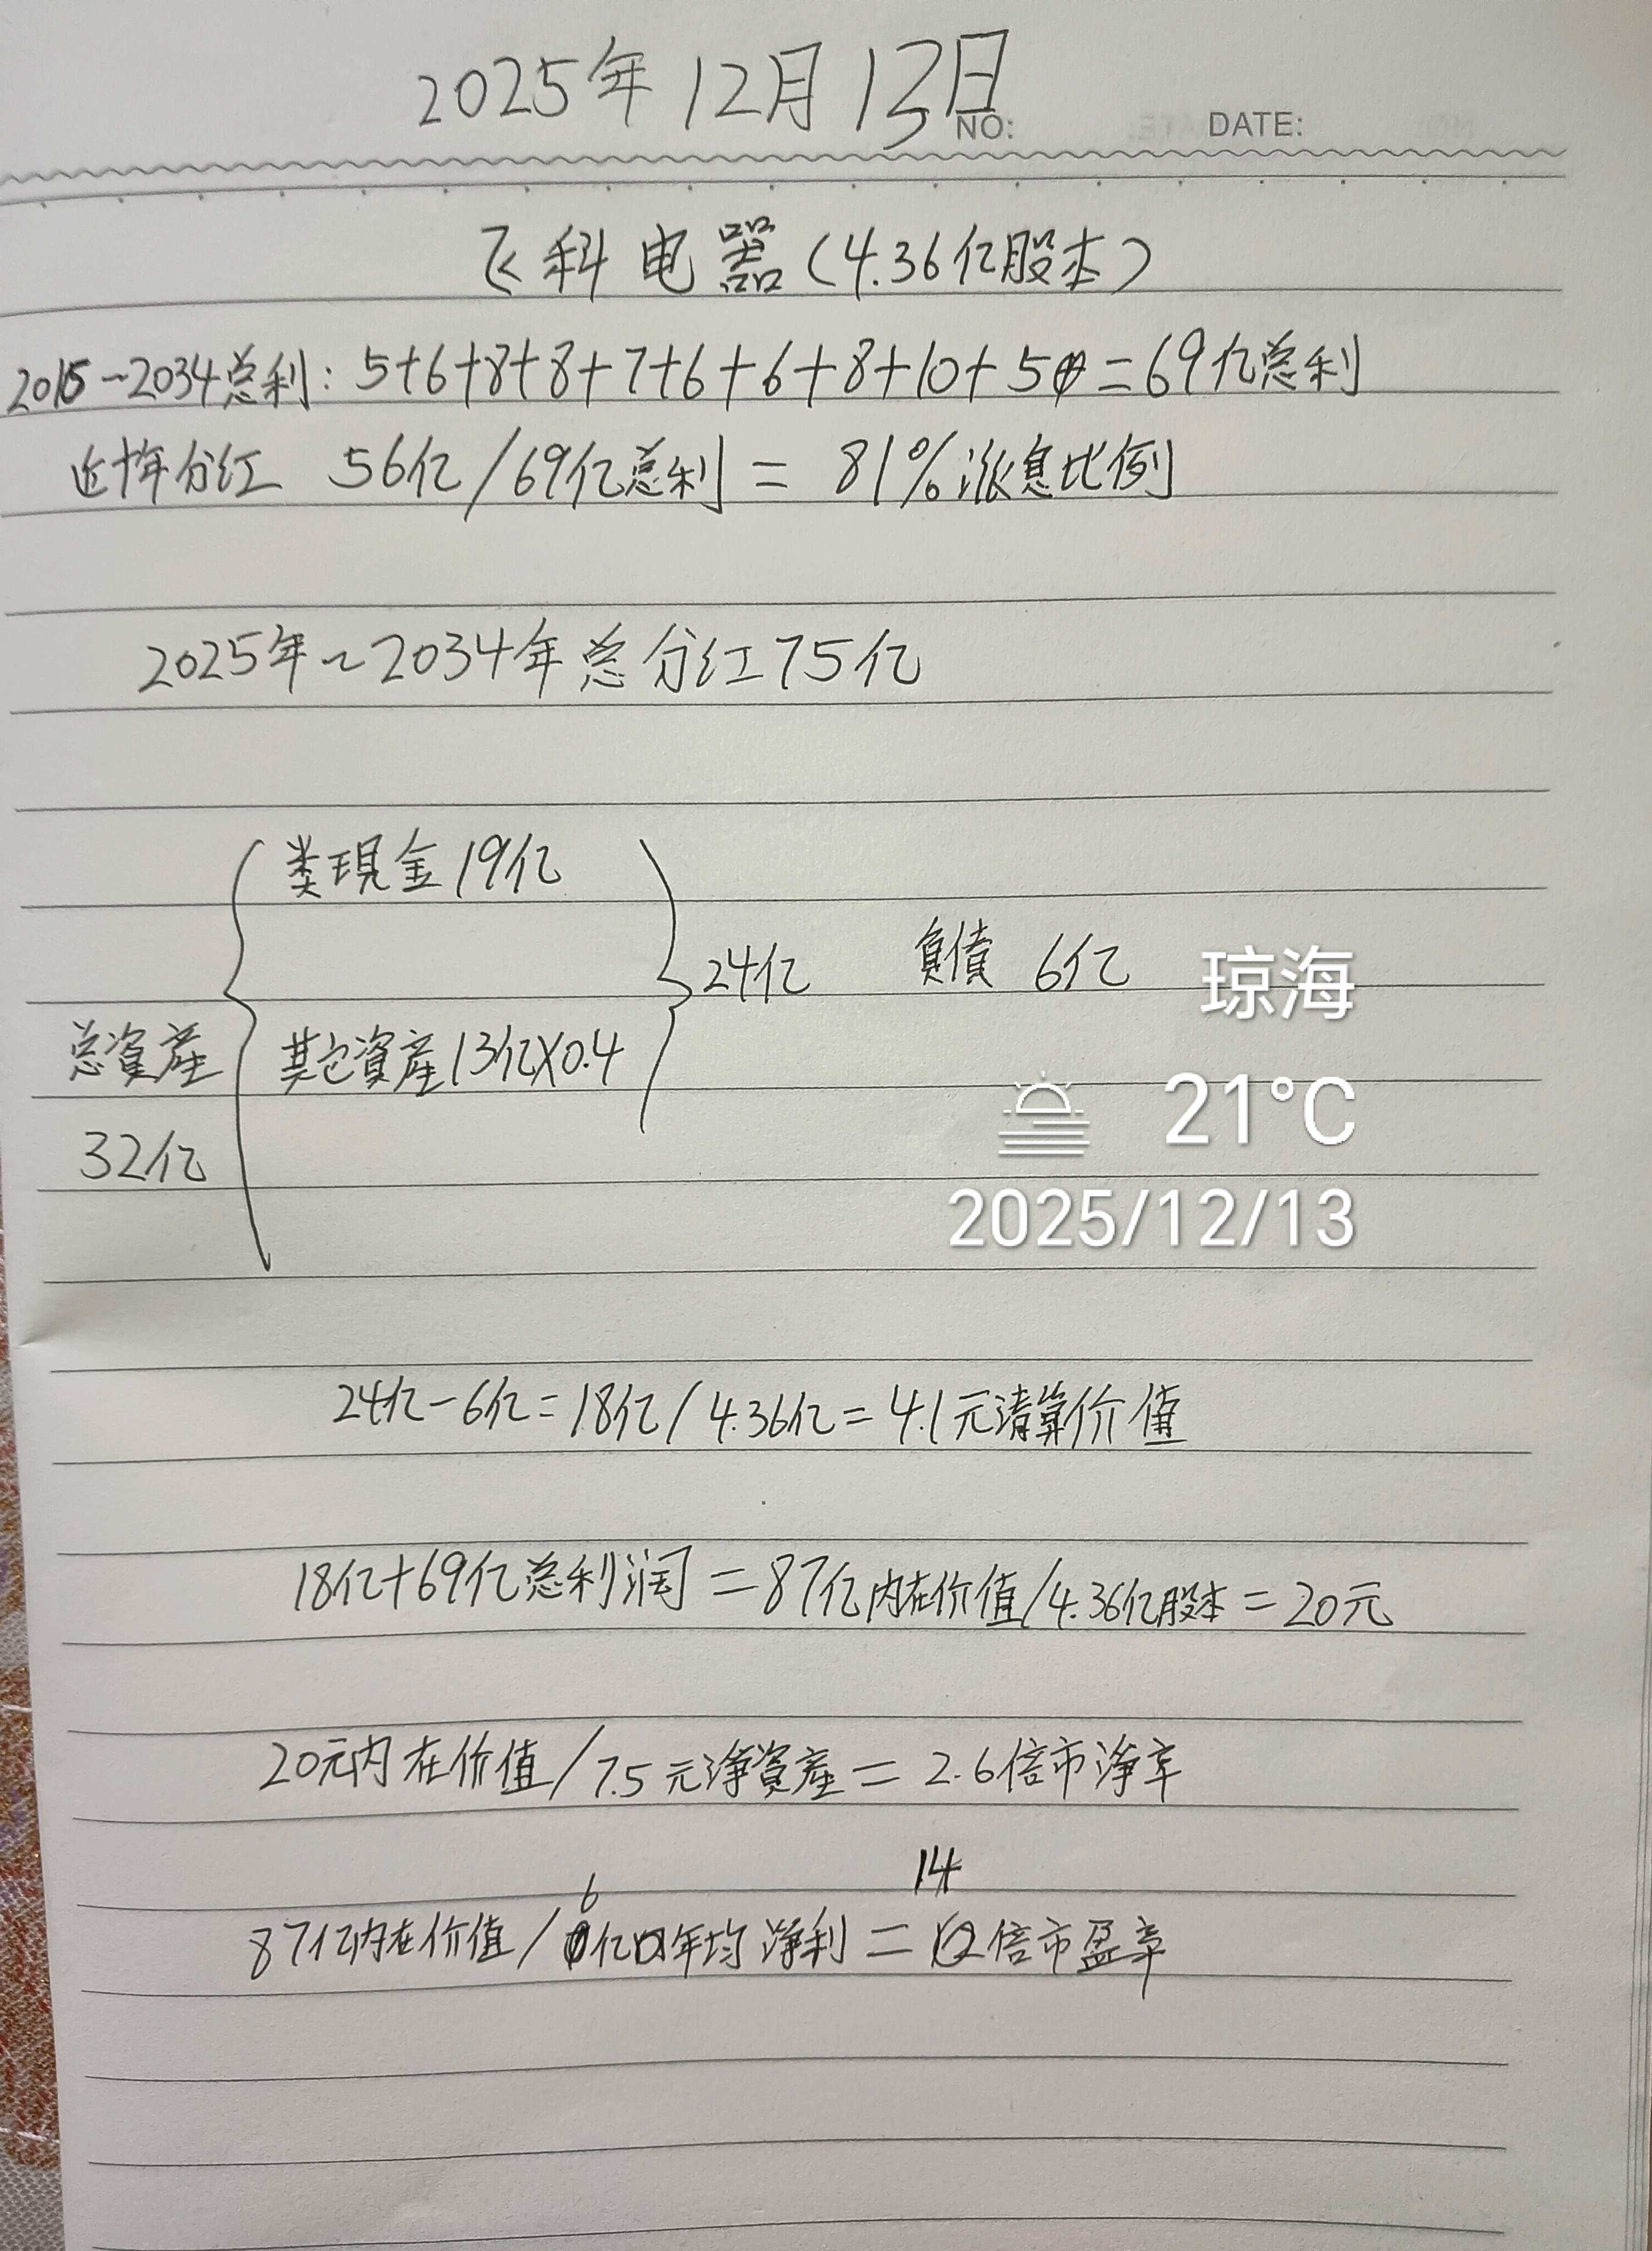 2025年12月13日
NO:
DATE:
飞科电器(4.36亿股本)
2015-2034总利:5+6+8+8+7+6+6+8+10+5=69亿总利
近十年分红 56亿/69亿总利=81%涨息比例
2025年~2034年总分红75亿
类現金19亿
24亿 負債 6亿
琼海
总資産
其它資産13亿X0.4
21°C
32亿
2025/12/13
24亿-6亿=18亿/4.36亿=4.1元清算价值
18亿+69亿总利润=87亿内在价值/4.36亿股本=20元
20元内在价值/7.5元淨資産=2.6倍市淨率
87亿内在价值/6亿年均淨利=14倍市盈率